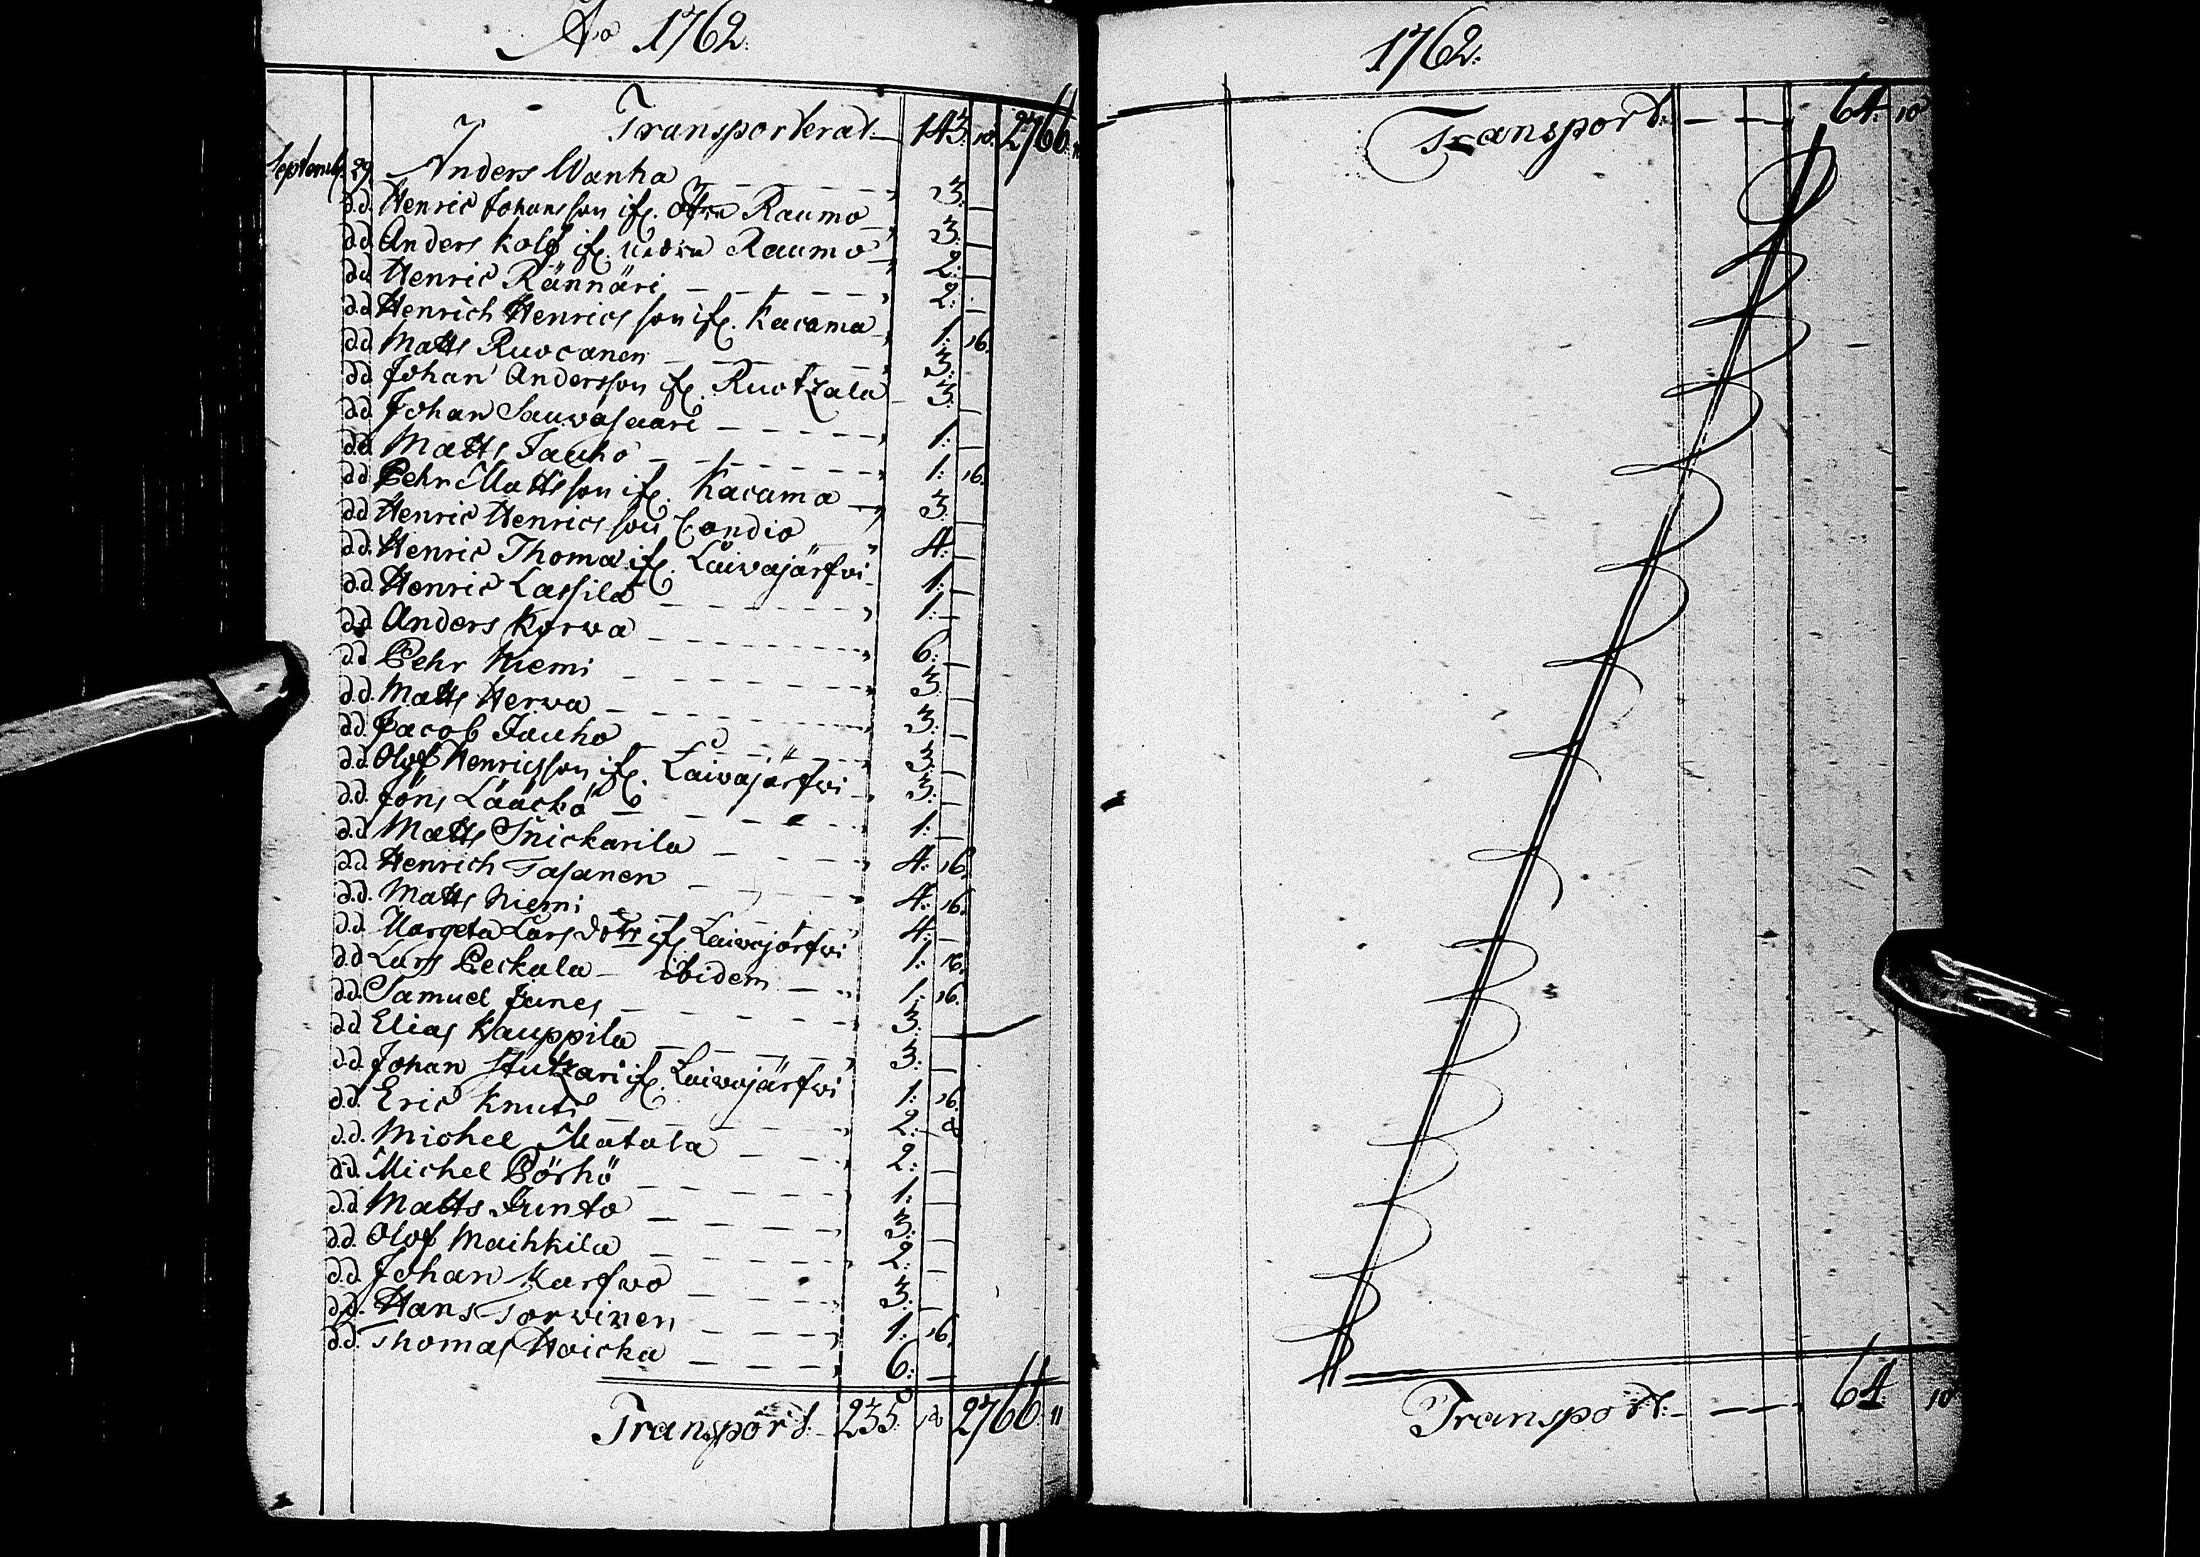 Ao 1762.
Transporterat 143. 10. 2766. 11
Septemb. 29. Anders Wanha 23.
dd. Henric Johansson ifr. Öfre Raumo 3.
dd Anders Kolf ifr. Nedre Raumo 2.
dd Henric Rännäri 2.
dd Henrich Henricsson ifr. Kacama 1. 16.
dd Matts Ruocanen 3.
dd Johan Andersson ifr. Ruotzala 3.
dd Johan Sauvasaari 1.
dd Matts Jauho 1. 16.
dd Pehr Mattsson ifr. Kacama 3.
dd Henric Henricsson Condio 4.
dd. Henric Thoma ifr. Laivajärfvi 1.
dd Henric Lassila 1.
dd Anders Korva 6.
dd Pehr Niemi 3.
dd. Matts Herva 3.
dd. Jacob Jauho 3.
dd. Olof Henricsson ifr. Laivajärfvi 3.
dd. Jöns Lääckö 1.
dd. Matts Snickarila 4. 16.
dd. Henrich Tasanen 4. 16.
dd. Matts Niemi 4.
dd. Margeta Larsdotr ifr. Laivajärfvi 1. 16.
dd Lars Peckala ibidem 1. 16.
dd. Samuel Junes 3.
dd Elias Kauppila 3.
dd. Johan Stutzari ifr. Laivajärfvi 1. 16.
dd. Eric Knuts 2. 8
dd. Michel Matala 2.
dd. Michel Pörhö 1.
dd Matts Junto 3.
dd. Olof Maihkila 2.
dd. Johan Karfvo 3.
dd. Hans Torvinen 1. 16.
dd. Thomas Hoicka 6.
Transport 235. 18 2766. 11
1762.
Transport. 64. 10
Transport. 64. 10